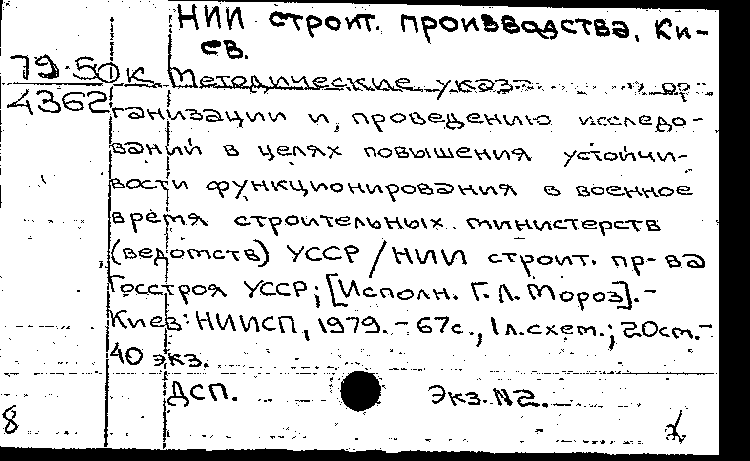 НИИ строит. производства, Ки-
ев.
79-50к Методические указа по ор-
4362 ганизации и проведению исследо-
ваний в целях повышения устойчи-
вости функционирования в военное
время строительных министерств
(ведомств) УССР / НИИ строит. пр-ва
Госстроя УССР; [Исполн. Г.Л. Мороз]. -
Киев: НИИСП, 1979. - 67с., 1л.схем.; 20см. -
40 экз.
ДСП. Экз. №2.
8